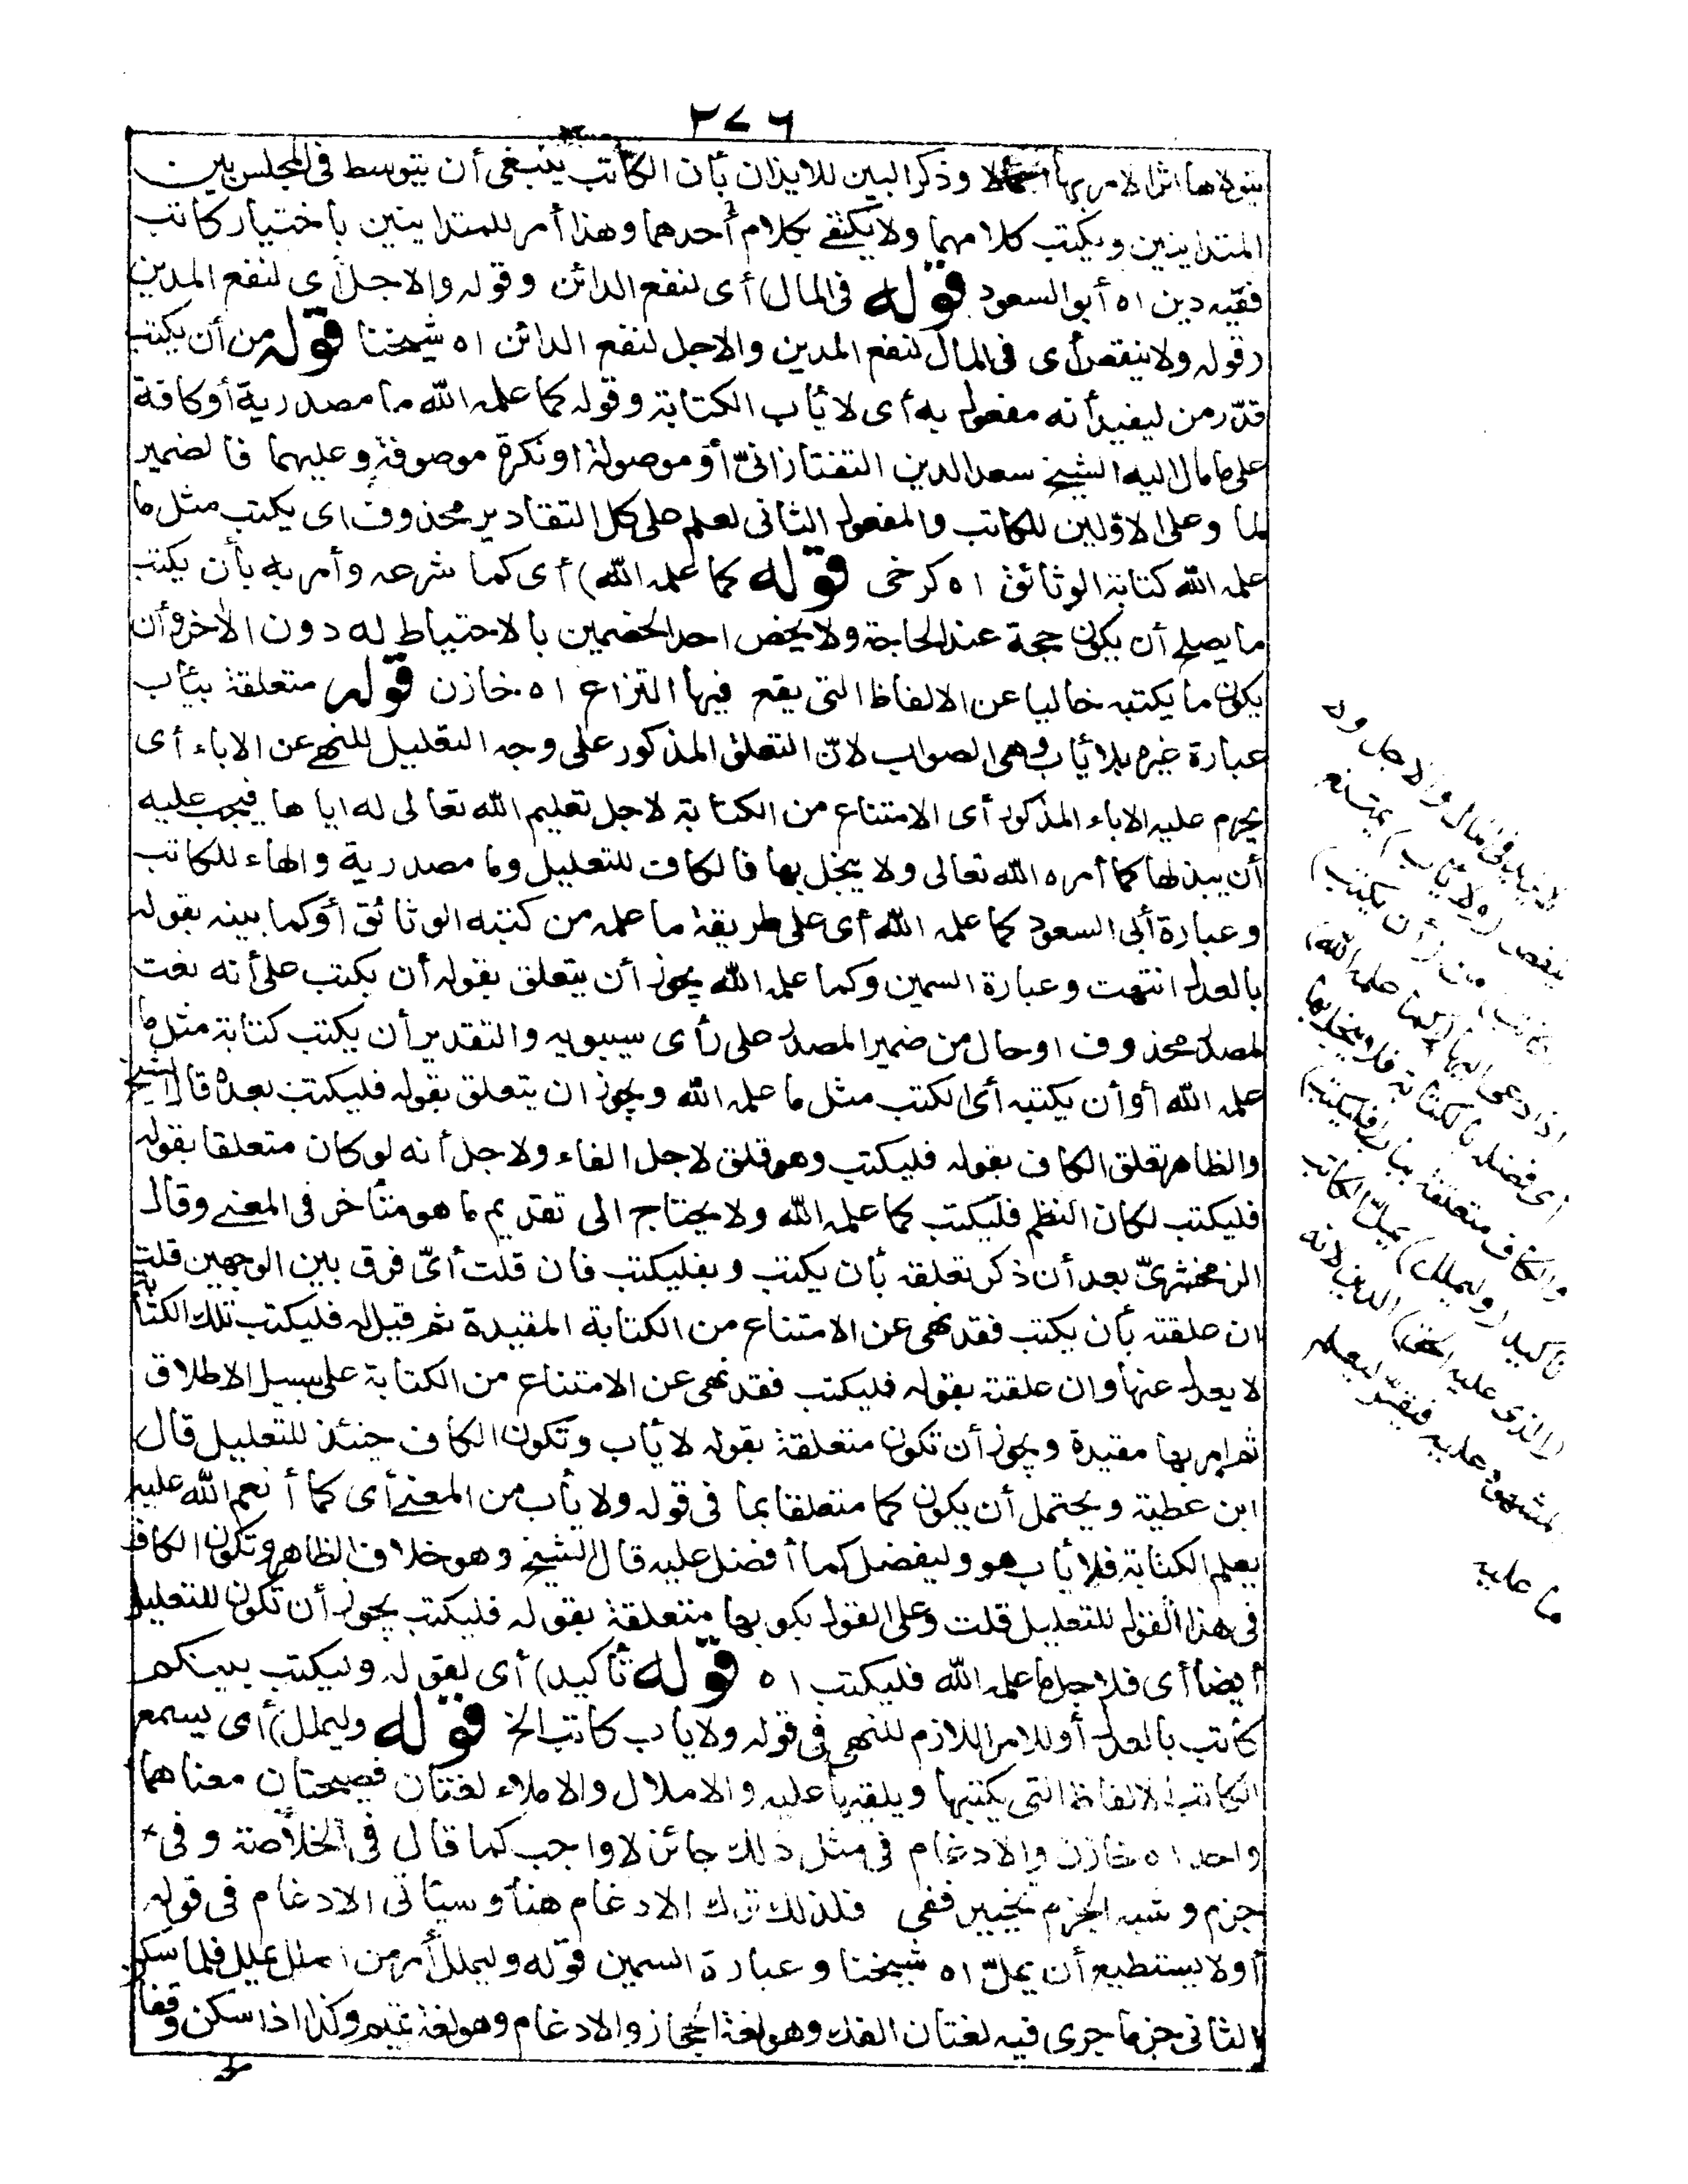 ٢٧٦
يتولاها اثر الامر بها اجمالا وذكر البين للايذان بأن الكاتب ينبغى أن يتوسط فى المجلس بين
المتداينين ويكتب كلامهما ولا يكتفى بكلام أحدهما وهذا أمر للمتداينين باختيار كاتب
فقيه دين اه أبو السعود قوله فى المال) أى لنفع الدائن وقوله والاجل أى لنفع المدين
وقوله ولا ينقص أى فى المال لنفع المدين والاجل لنفع الدائن اه شيخنا قوله من أن يكتب
قدّر من ليفيد أنه مفعول به أى لا يأب الكتابة وقوله كما علمه الله ما مصدرية أو كافة
على ما مال اليه الشيخ سعد الدين التفتازانىّ أو موصولة او نكرة موصوفة وعليهما فالضمير
لما وعلى الاوّلين للكاتب والمفعول الثانى لعلم على كل التقادير محذوف اى يكتب مثل ما
علمه الله كتابة الوثائق اه كرخى قوله كما علمه الله) أى كما شرعه وأمر به بأن يكتب
ما يصلح أن يكون حجة عند الحاجة ولا يخص احد الخصمين بالاحتياط له دون الآخر وأن
يكون ما يكتبه خاليا عن الالفاظ التى يقع فيها النزاع اه خازن قوله متعلقة بيأب
عبارة غيره بلا يأب وهى الصواب لانّ التعلق المذكور على وجه التعليل للنهى عن الاباء أى
يحرم عليه الاباء المذكور أى الامتناع من الكتابة لاجل تعليم الله تعالى له اياها فيجب عليه
أن يبذلها كما أمره الله تعالى ولا يبخل بها فالكاف للتعليل وما مصدرية والهاء للكاتب
وعبارة أبى السعود كما علمه الله أى على طريقة ما علمه من كتبه الوثائق أو كما بينه بقوله
بالعدل انتهت وعبارة السمين وكما علمه الله يجوز أن يتعلق بقوله أن يكتب على أنه نعت
لمصدر محذوف اوحال من ضمير المصدر على رأى سيبويه والتقدير أن يكتب كتابة مثل ما
علمه الله أو أن يكتبه أى الكتب مثل ما علمه الله ويجوز ان يتعلق بقوله فليكتب بعده قال الشيخ
والظاهر تعلق الكاف بقوله فليكتب وهو قلق لاجل الفاء ولاجل أنه لو كان متعلقا بقوله
فليكتب لكان النظم فليكتب كما علمه الله ولا يحتاج الى تقديم ما هو متأخر فى المعنى وقال
الزمخشرىّ بعد أن ذكر تعلقه بأن يكتب وبفليكتب فان قلت أىّ فرق بين الوجهين قلت
ان علقته بأن يكتب فقد نهى عن الامتناع من الكتابة المقيدة ثم قيل له فليكتب تلك الكتابة
لا يعدل عنها وان علقته بقوله فليكتب فقد نهى عن الامتناع من الكتابة على سبيل الاطلاق
ثم امر بها مقيدة ويجوز أن تكون متعلقة بقوله لا يأب وتكون الكاف حينئذ للتعليل قال
ابن عطية ويحتمل أن يكون كما متعلقا بما فى قوله ولا يأب من المعنى أى كما أنعم الله عليه
بعلم الكتابة فلا يأب هو وليفضل كما أفضل عليه قال الشيخ وهو خلاف الظاهر وتكون الكاف
فى هذا القول للتعليل قلت وعلى القول بكونها متعلقة بقوله فليكتب يجوز أن تكون للتعليل
أيضا أى فلاجل ما علمه الله فليكتب اه قوله تأكيد) أى لقوله وليكتب بينكم
كاتب بالعدل أو للامر اللازم للنهى فى قوله ولا يأب كاتب الخ قوله وليملل) أى يسمع
الكاتب الالفاظ التى يكتبها ويلقيها عليه والاملال والاملاء لغتان فصيحتان معناهما
واحد اه خازن والادغام فى مثل ذلك جائز لا واجب كما قال فى الخلاصة وفى
جزم وشبه الجزم تخيير قفى فلذلك ترك الادغام هنا وسيأتى الادغام فى قوله
أو لا يستطيع أن يملّ اه شيخنا وعبارة السمين قوله وليملل أمر من أملل يملل فلما سكن
الثانى جزما جرى فيه لغتان الفك وهو لغة الحجاز والادغام وهو لغة تميم وكذا اذا سكن وقفا
لا يزيد فى المال والاجل ولا
ينقص (ولا يأب) يمتنع
(كاتب) من (أن يكتب)
اذا دعى اليها (كما علمه الله)
أى فضله بالكتابة فلا يبخل بها
والكاف متعلقة بيأب (فليكتب)
تأكيد (وليملل) يمل الكاتب
(الذى عليه الحق) الدين لانه
المشهود عليه فيقرّ ليعلم
ما عليه